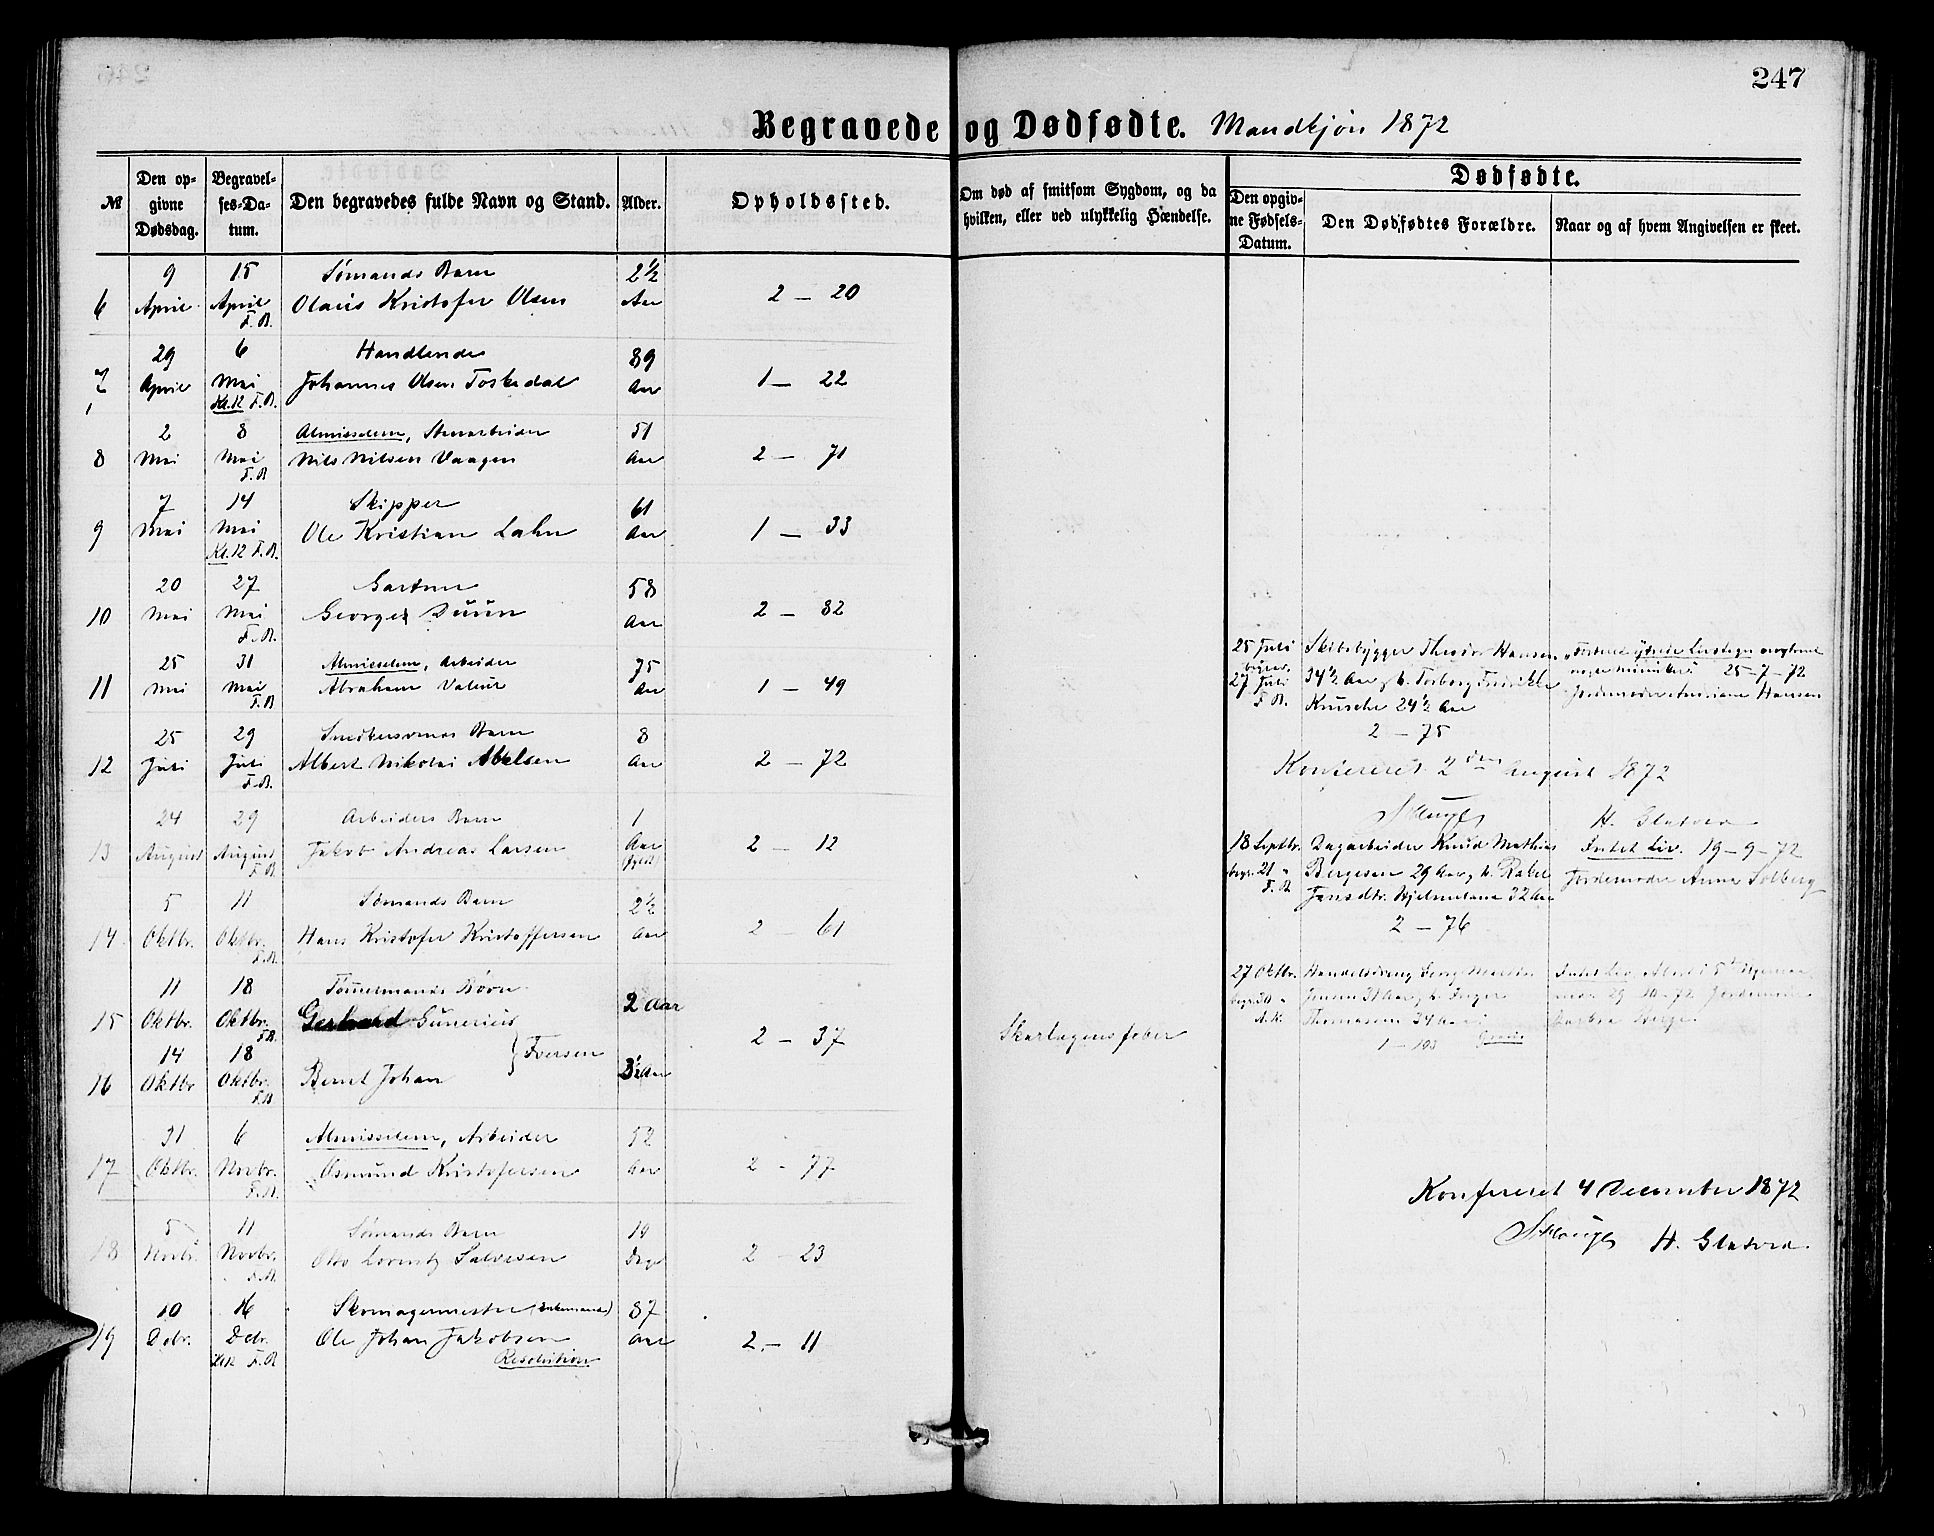 247
Begravede og Dødfødte. Mandkjøn 1872
№
Den opgivne Dødsdag.
Begravelses-Datum.
Den begravedes fulde Navn og Stand.
Alder.
Opholdssted.
Om død af smitsom Sygdom, og da hvilken, eller ved ulykkelig Hændelse.
Dødfødte.
Den opgivne Fødsels-Datum.
Den Dødfødtes Forældre.
Naar og af hvem Angivelsen er skeet.
9 15 Sømands Barn 2½
6 April April Olaus Kristofer Olsen Aar 2 – 20
F. B.
29 6 Handlende 89
7 April Mai Johannes Olsen Toskedal Aar 1 – 22
Kl. 12 F. B.
2 8 Almisselem, Stenarbeider 51
8 Mai Mai Nils Nilsen Vaagen Aar 2 – 71
F. B
7 14 Skipper 61
9 Mai Mai Ole Kristian Lahn Aar 1 – 33
Kl. 12 F. B.
20 27 Gartner 58
10 Mai Mai George Duun Aar 2 – 82
F. B.
25 31 Almisselem, Arbeider 75
11 Mai Mai Abraham Valeur Aar 1 – 49
F. B
25 29 Snedkersvends Barn 8
12 Juli Juli Albert Nikolai Abelsen Aar 2 – 72
F. B.
24 29 Arbeiders Barn 1
13 August August Jakob Andreas Larsen Aar 2 – 12
F. B
5 11 Sømands Barn 2½
14 Oktbr. Oktbr. Hans Kristofer Kristoffersen Aar 2 – 61
F. B.
11 18 Tømmermands Børn
15 Oktbr. Oktbr. Gerhard Gunerius 2 Aar
F. B.
} Iversen 2 – 37 Skarlagensfeber
14 18
16 Oktbr Oktbr. Bernt Johan 3½ Aar
F. B.
31 6 Almisselem, Arbeider 52
17 Oktbr. Novbr. Osmund Kristofersen Aar 2 - 77
F. B.
5 11 Sømands Barn 19
18 Novbr. Novbr. Otto Lorentz Salvesen Dage 2 – 23
F. B.
10 16 Skomagermester (Enkemand) 87
19 Debr. Debr. Ole Johan Jakobsen Aar 2 – 11
Kl 12 F. B Resolution
25 Juli Skibsbygger Theodor Hansen
begrav. 27 Juli 34½ Aar, h. Torborg Fredrikke 25 – 7 – 72
F. B. Krusche 24½ Aar Jordemoder Hansen
2 – 75
Konfereret 2den August 1872
H. Glatved
18 Septbr. Dagarbeider Knud Mathias Intet Liv. 19 – 9 – 72
begr. 21 " Bergesen 29 Aar, h. Rakel Jordemoder Anna Solberg
F. B Jensdtr. Hjelmeland 32 Aar
2 – 76
27 Oktbr. Jensen 31 Aar, h. Inger
begr. 30 " Thomasen 34 Aar 29-10-72 Jordemoder
1 – 103
Konfereret 4 December 1872
H. Glatved.